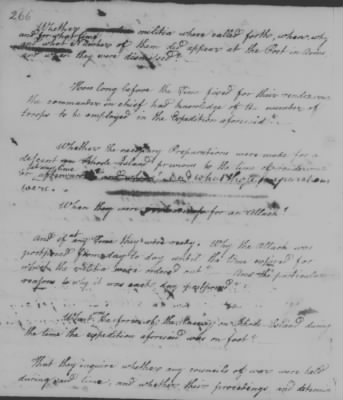 266
Whether militia where called forth, when, why
and for what time,
and what Number of them did appear at the Post in Arms
and when they were dismissed?
How long before the Time fixed for their rendezvous
the commander in chief had knowledge of the number of
troops to be employed in the Expedition aforesaid?
Whether the necessary Preparations were made for a
descent on Rhode Island previous to the time of
or afterwards and what preparations
were.
When they were for an Attack?
And if at any Time they were ready. Why the Attack was
postponed from day to day until the time expired for
which the Militia were ordered out? And the particular
reasons why it was each day postponed?
What the forces of the Enemy on Rhode Island during
the time the expedition aforesaid was on foot?
That they inquire whether any councils of war were held
during said time, and whether their proceedings and